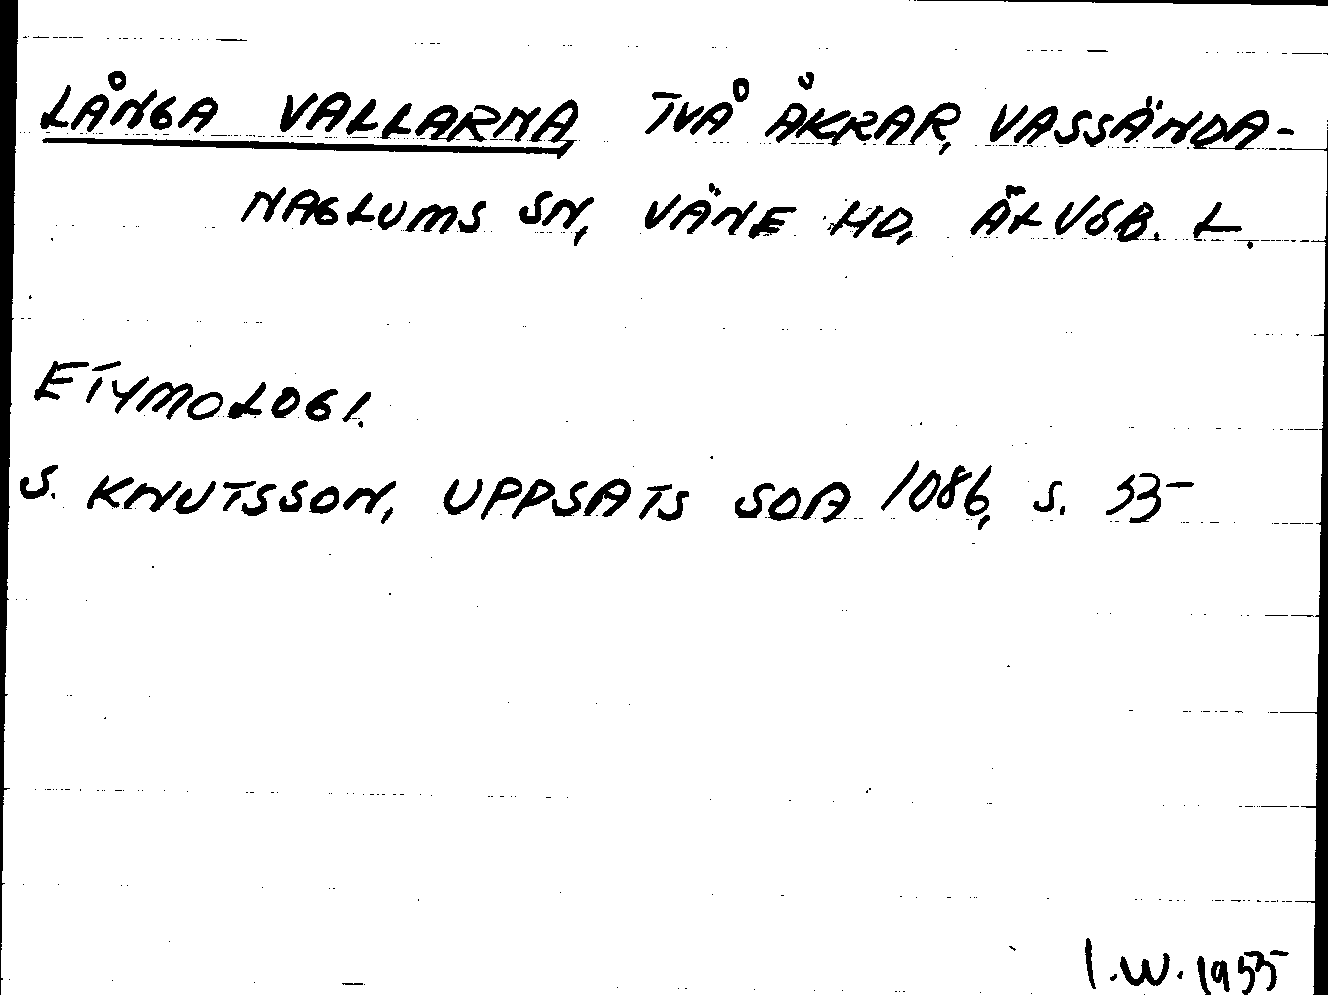 LÅNGA VALLARNA, TVÅ ÅKRAR, VASSÄNDA-
NAGLUMS SN, VÄNE HD, ÄLVSB. L.
ETYMOLOGI.
S. KNUTSSON, UPPSATS SOA 1086, S. 53
I.W. 1955